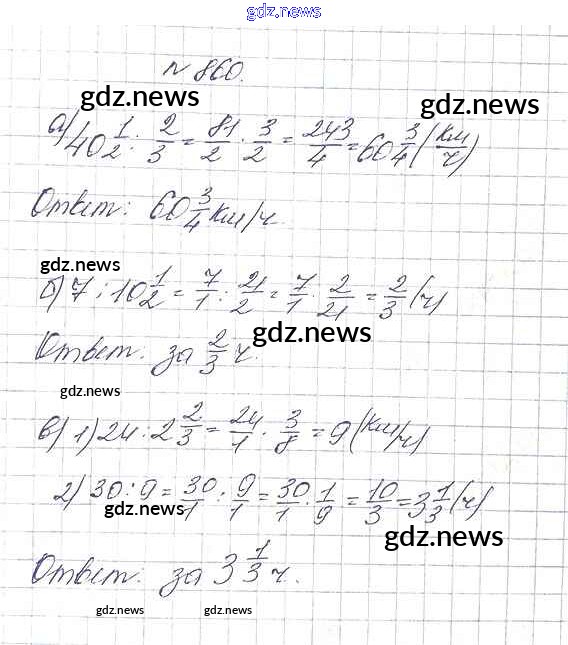 gdz.news
№ 860.
gdz.news
gdz.news
а) 40 1/2 : 2/3 = 81/2 · 3/2 = 243/4 = 60 3/4 (км/ч)
Ответ: 60 3/4 км/ч.
gdz.news
б) 7 : 10 1/2 = 7/1 : 21/2 = 7/1 · 2/21 = 2/3 (ч)
gdz.news
Ответ: за 2/3 ч.
gdz.news
в) 1) 24 : 2 2/3 = 24/1 · 3/8 = 9 (км/ч)
2) 30 : 9 = 30/1 : 9/1 = 30/1 · 1/9 = 10/3 = 3 1/3 (ч)
gdz.news
gdz.news
Ответ: за 3 1/3 ч.
gdz.news gdz.news